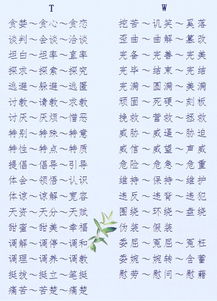 T
贪婪～贪心～贪恋
谈判～会谈～洽谈
坦白～坦率～直率
探求～探索～探究
逃避～躲避～逃匿
讨教～请教～求教
讨厌～厌烦～憎恶
特别～特殊～特意
特性～特点～特质
提倡～倡导～引导
体会～领悟～认识
体谅～谅解～宽容
天资～天分～天赋
甜蜜～甜美～幸福
调解～调停～调和
调理～调养～调教
挺拔～挺立～笔挺
痛苦～苦楚～痛楚
W
挖苦～讥笑～奚落
歪曲～曲解～篡改
完备～完善～完美
完毕～结束～完结
完满～圆满～美满
顽固～死硬～刻板
挽救～营救～拯救
威胁～威逼～胁迫
威信～威望～声威
危险～危急～危重
维持～保持～维护
违反～违背～违犯
围绕～环绕～盘绕
～假装
委屈～冤屈～冤枉
委婉～婉转～含蓄
慰劳～慰问～慰藉